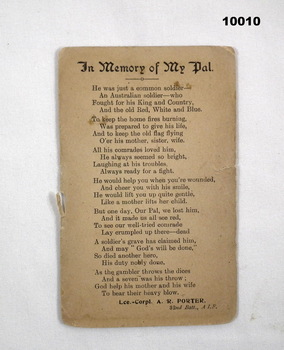 10010
In Memory of My Pal.
He was just a common soldier—
An Australian soldier—who
Fought for his King and Country,
And the old Red, White and Blue.
To keep the home fires burning,
Was prepared to give his life,
And to keep the old flag flying
O'er his mother, sister, wife.
All his comrades loved him,
He always seemed so bright,
Laughing at his troubles.
Always ready for a fight.
He would help you when you're wounded,
And cheer you with his smile,
He would lift you up quite gentle,
Like a mother lifts her child.
But one day, Our Pal, we lost him,
And it made us all see red,
To see our well-tried comrade
Lay crumpled up there—dead
A soldier's grave has claimed him,
And may "God's will be done,"
So died another hero,
His duty nobly done,
As the gambler throws the dices
And a seven was his throw;
God help his mother and his wife
To bear their heavy blow.
Lce.-Corpl. A. R. PORTER.
Batt., A I.F.